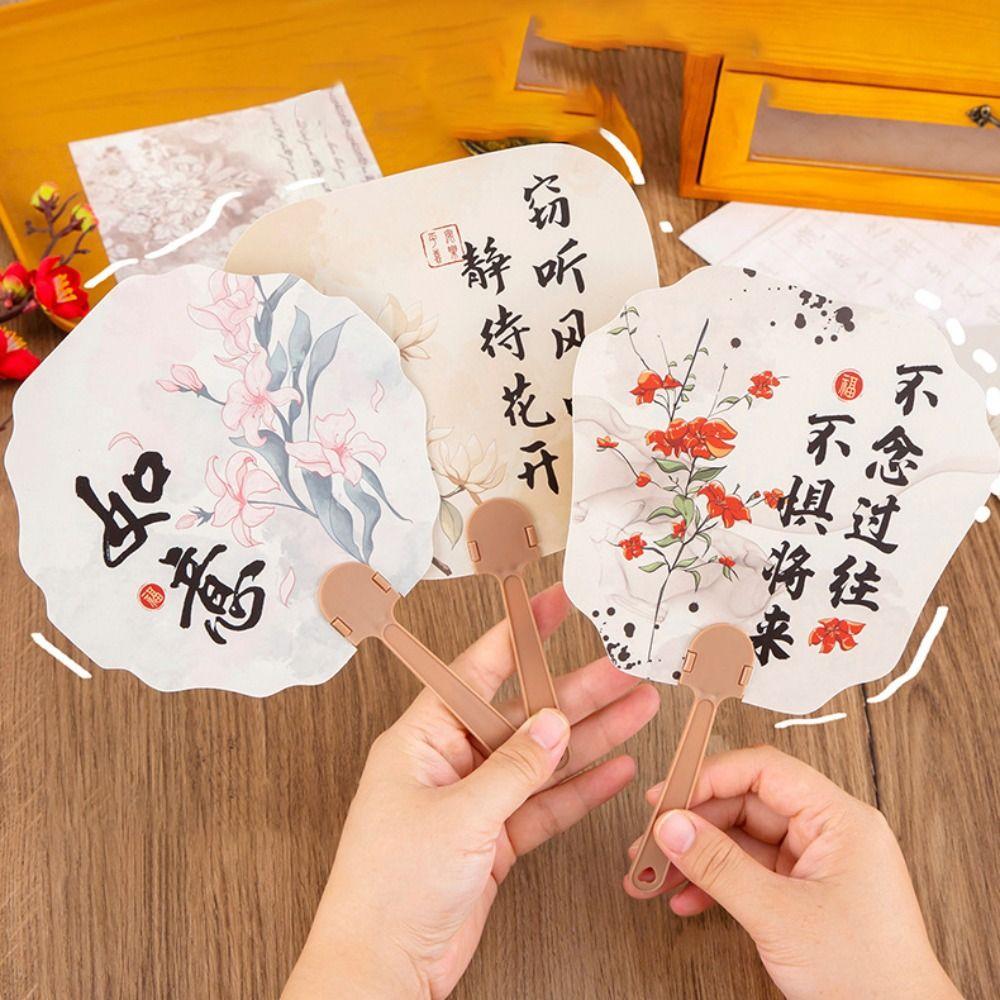 如意
窃听风
静待花开
福
不念过往
不惧将来